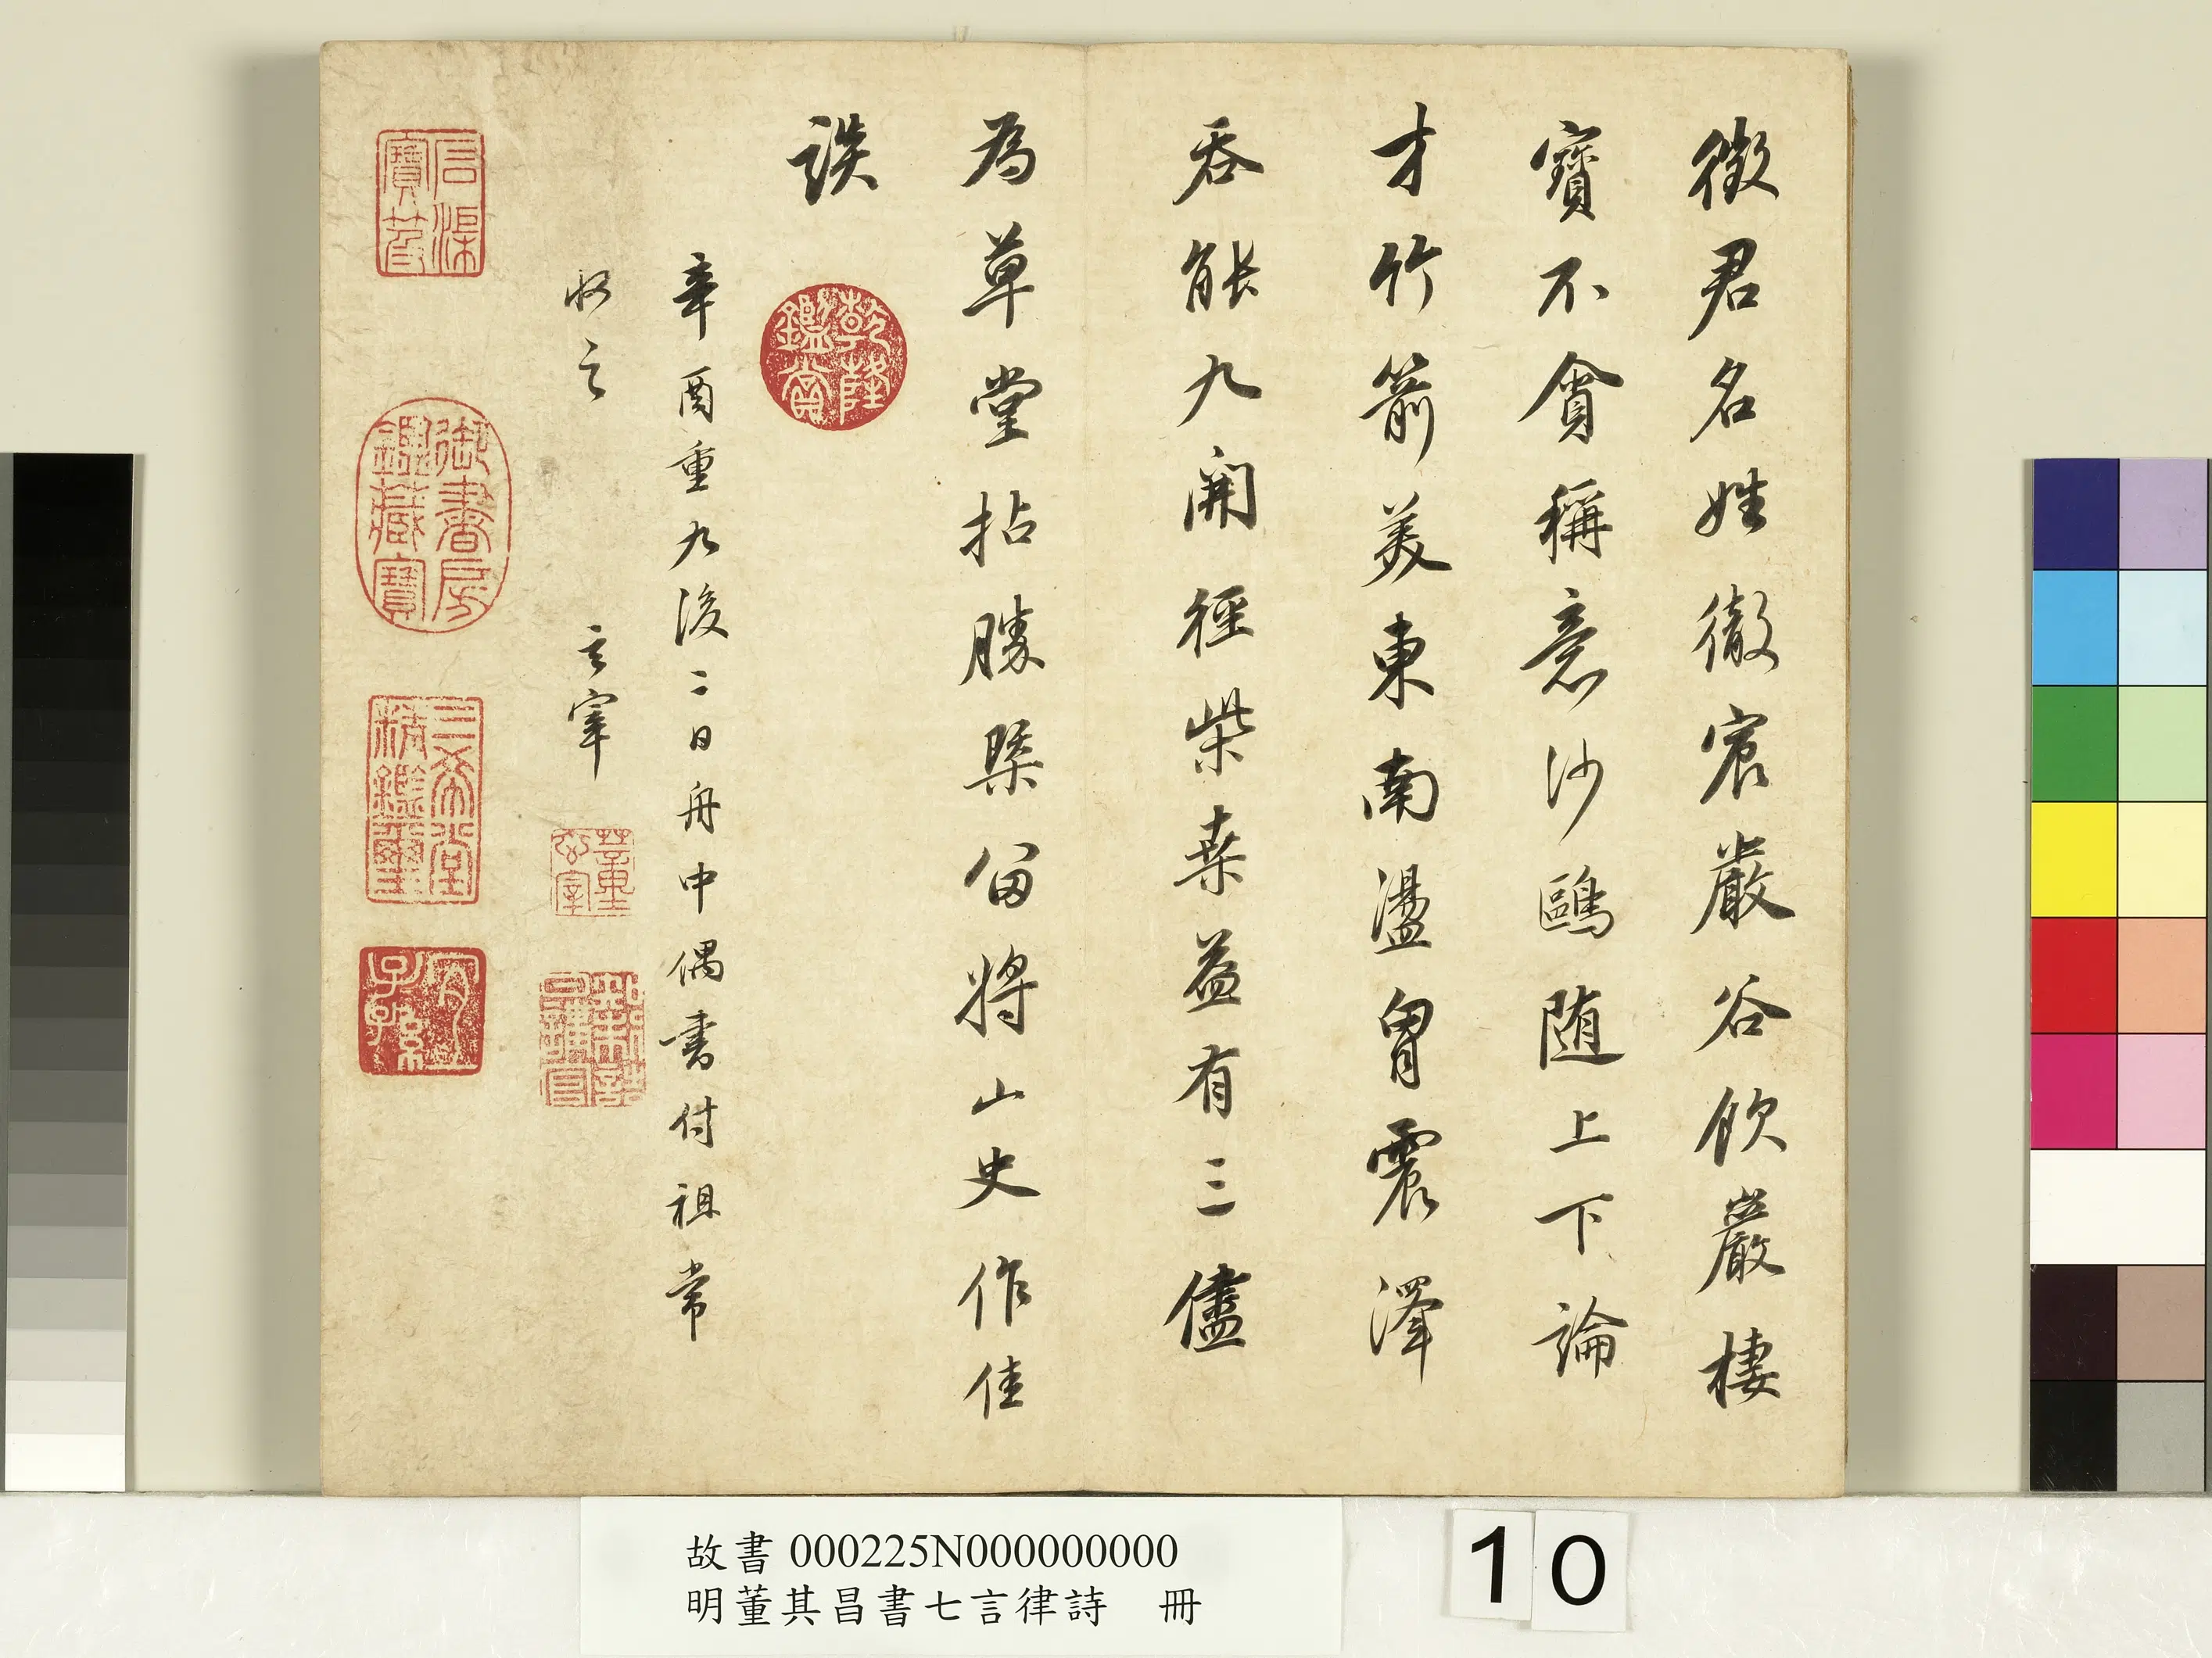 徵君名姓徹宸嚴谷飲巖棲
寶不貪稱意沙鷗随上下論
才竹箭美東南盪胷震澤
吞能九開徑柴桑益有三儘
為草堂拈勝槩留將山史作佳
談
乾隆鑑賞
辛酉重九後二日舟中偶書付祖常
收之 玄宰
董玄宰
知制誥日講官
石渠寶笈
御書房鑑藏寶
三希堂精鑑璽
宜子孫
故書 000225N000000000
明董其昌書七言律詩 冊
10